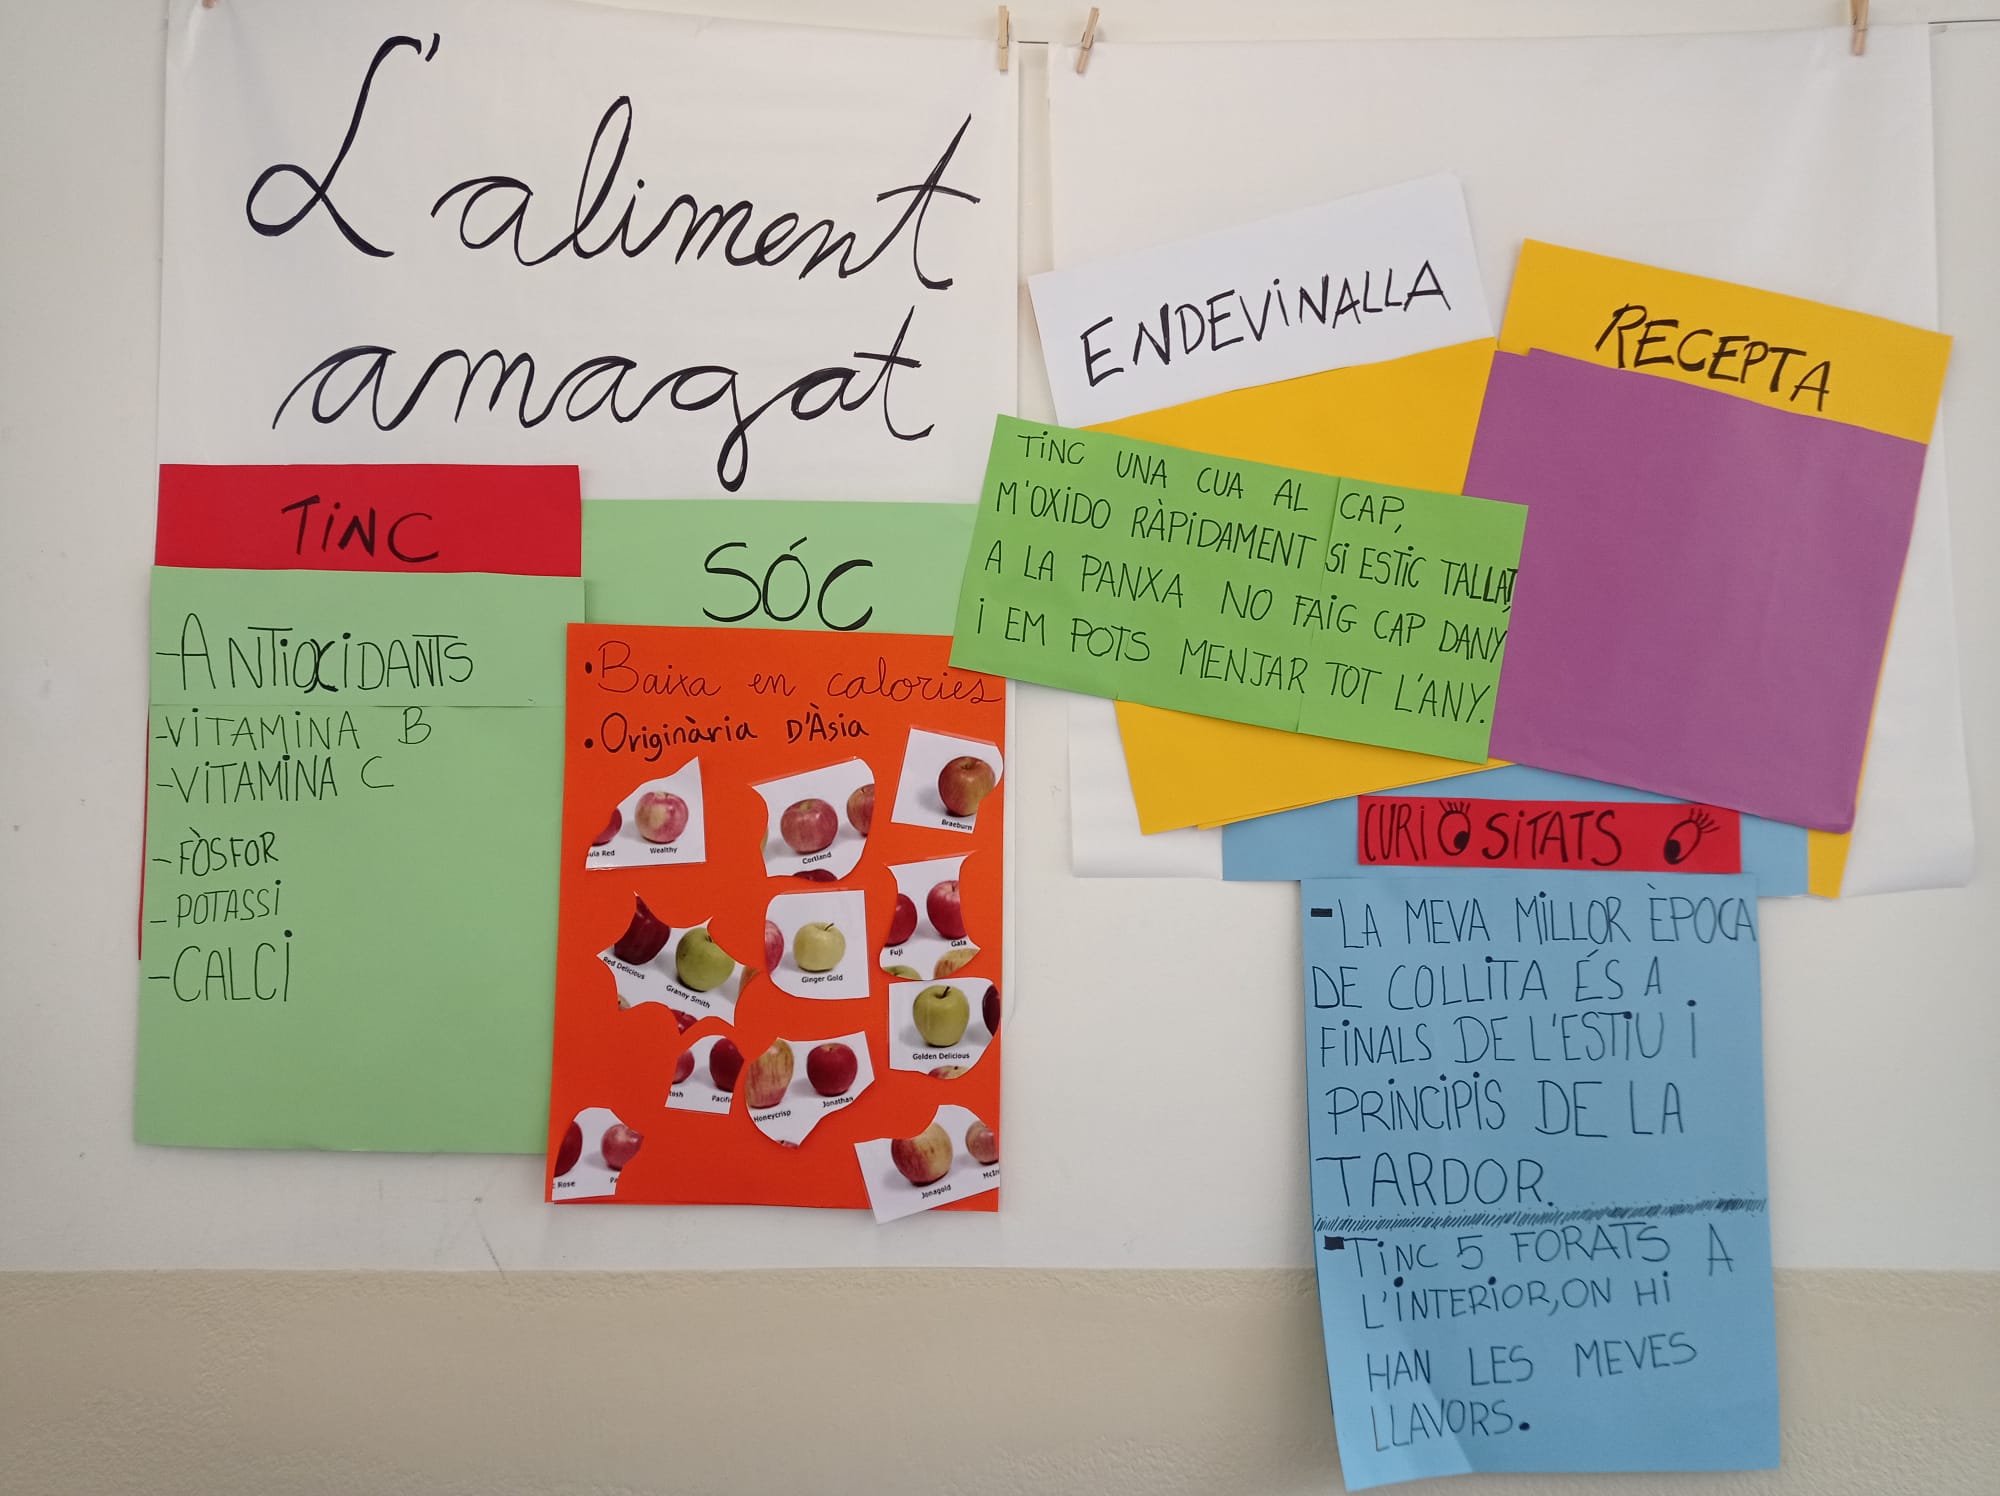 L'aliment
amagat
TINC
-ANTIOXIDANTS
-VITAMINA B
-VITAMINA C
-FÒSFOR
-POTASSI
-CALCI
SÓC
•Baixa en calories
•Originària D'Àsia
ula Red Wealthy
Cortland
Braeburn
Red Delicious Granny Smith
Ginger Gold
Fuji Gala
Golden Delicious
tosh Pacific
Honeycrisp Jonathan
Rose Pa
Jonagold McIn
ENDEVINALLA
TINC UNA CUA AL CAP,
M'OXIDO RÀPIDAMENT SI ESTIC TALLAT,
A LA PANXA NO FAIG CAP DANY
I EM POTS MENJAR TOT L'ANY.
RECEPTA
CURIOSITATS
-LA MEVA MILLOR ÈPOCA
DE COLLITA ÉS A
FINALS DE L'ESTIU I
PRINCIPIS DE LA
TARDOR.
-TINC 5 FORATS A
L'INTERIOR, ON HI
HAN LES MEVES
LLAVORS.